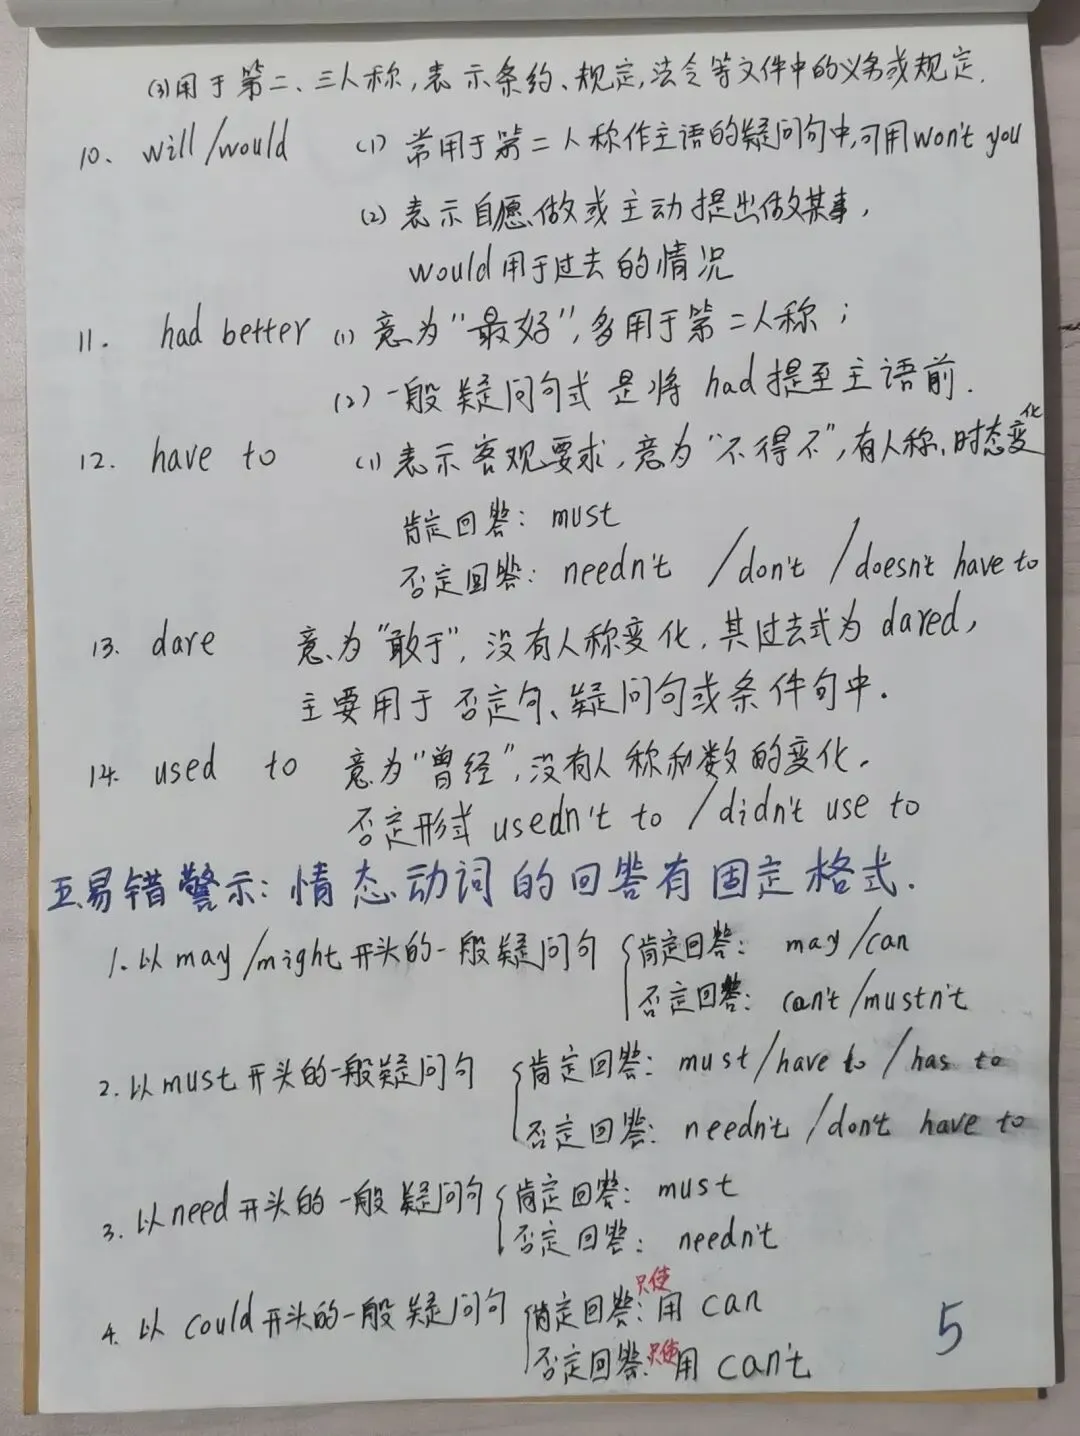 (3)用于第二、三人称,表示条约、规定,法令等文件中的义务或规定.
10. will/would (1) 常用于第二人称作主语的疑问句中,可用won't you
(2) 表示自愿做或主动提出做某事,
would用于过去的情况
11. had better (1) 意为"最好",多用于第二人称;
(2) 一般疑问句式是将had提至主语前.
12. have to (1) 表示客观要求,意为"不得不",有人称、时态变化
肯定回答: must
否定回答: needn't /don't /doesn't have to
13. dare 意为"敢于",没有人称变化,其过去式为dared,
主要用于否定句、疑问句或条件句中.
14. used to 意为"曾经",没有人称和数的变化.
否定形式 usedn't to /didn't use to
五.易错警示:情态动词的回答有固定格式.
1. 以may/might开头的一般疑问句 肯定回答: may/can
否定回答: can't/mustn't
2. 以must开头的一般疑问句 肯定回答: must/have to/has to
否定回答: needn't/don't have to
3. 以need开头的一般疑问句 肯定回答: must
否定回答: needn't
4. 以could开头的一般疑问句 肯定回答:只使用can
否定回答:只使用can't
5